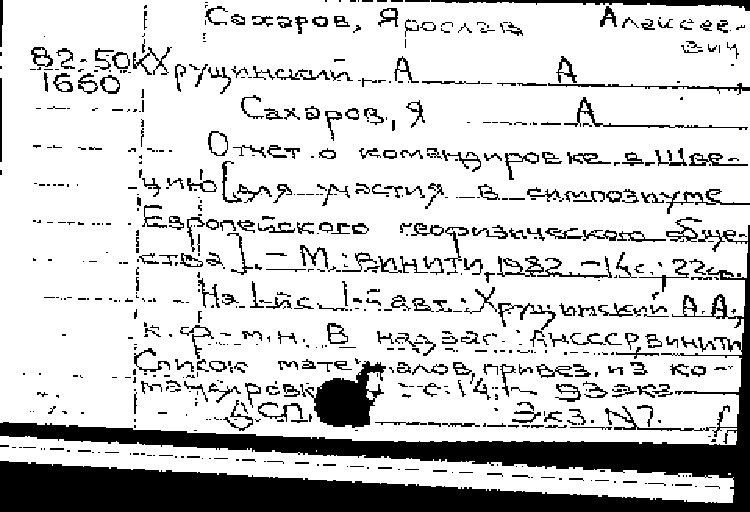 Сахаров, Ярослав Алексее-
вич
82-50к Хрущинский, А А
1660
Сахаров, Я А
Отчет о командировке в Шве-
цию [для участия в симпозиуме
Европейского геофизического обще-
ства]. - М.: ВИНИТИ, 1982. - 14с.; 22см.
На 1-й с. 1-й авт.: Хрущинский А.А.,
к. ф.-м.н. В надзаг.: АН СССР, ВИНИТИ
Список матер алов, привез. из ко-
мандировк : с. 14. 93 экз
ДСП. Экз. N7.